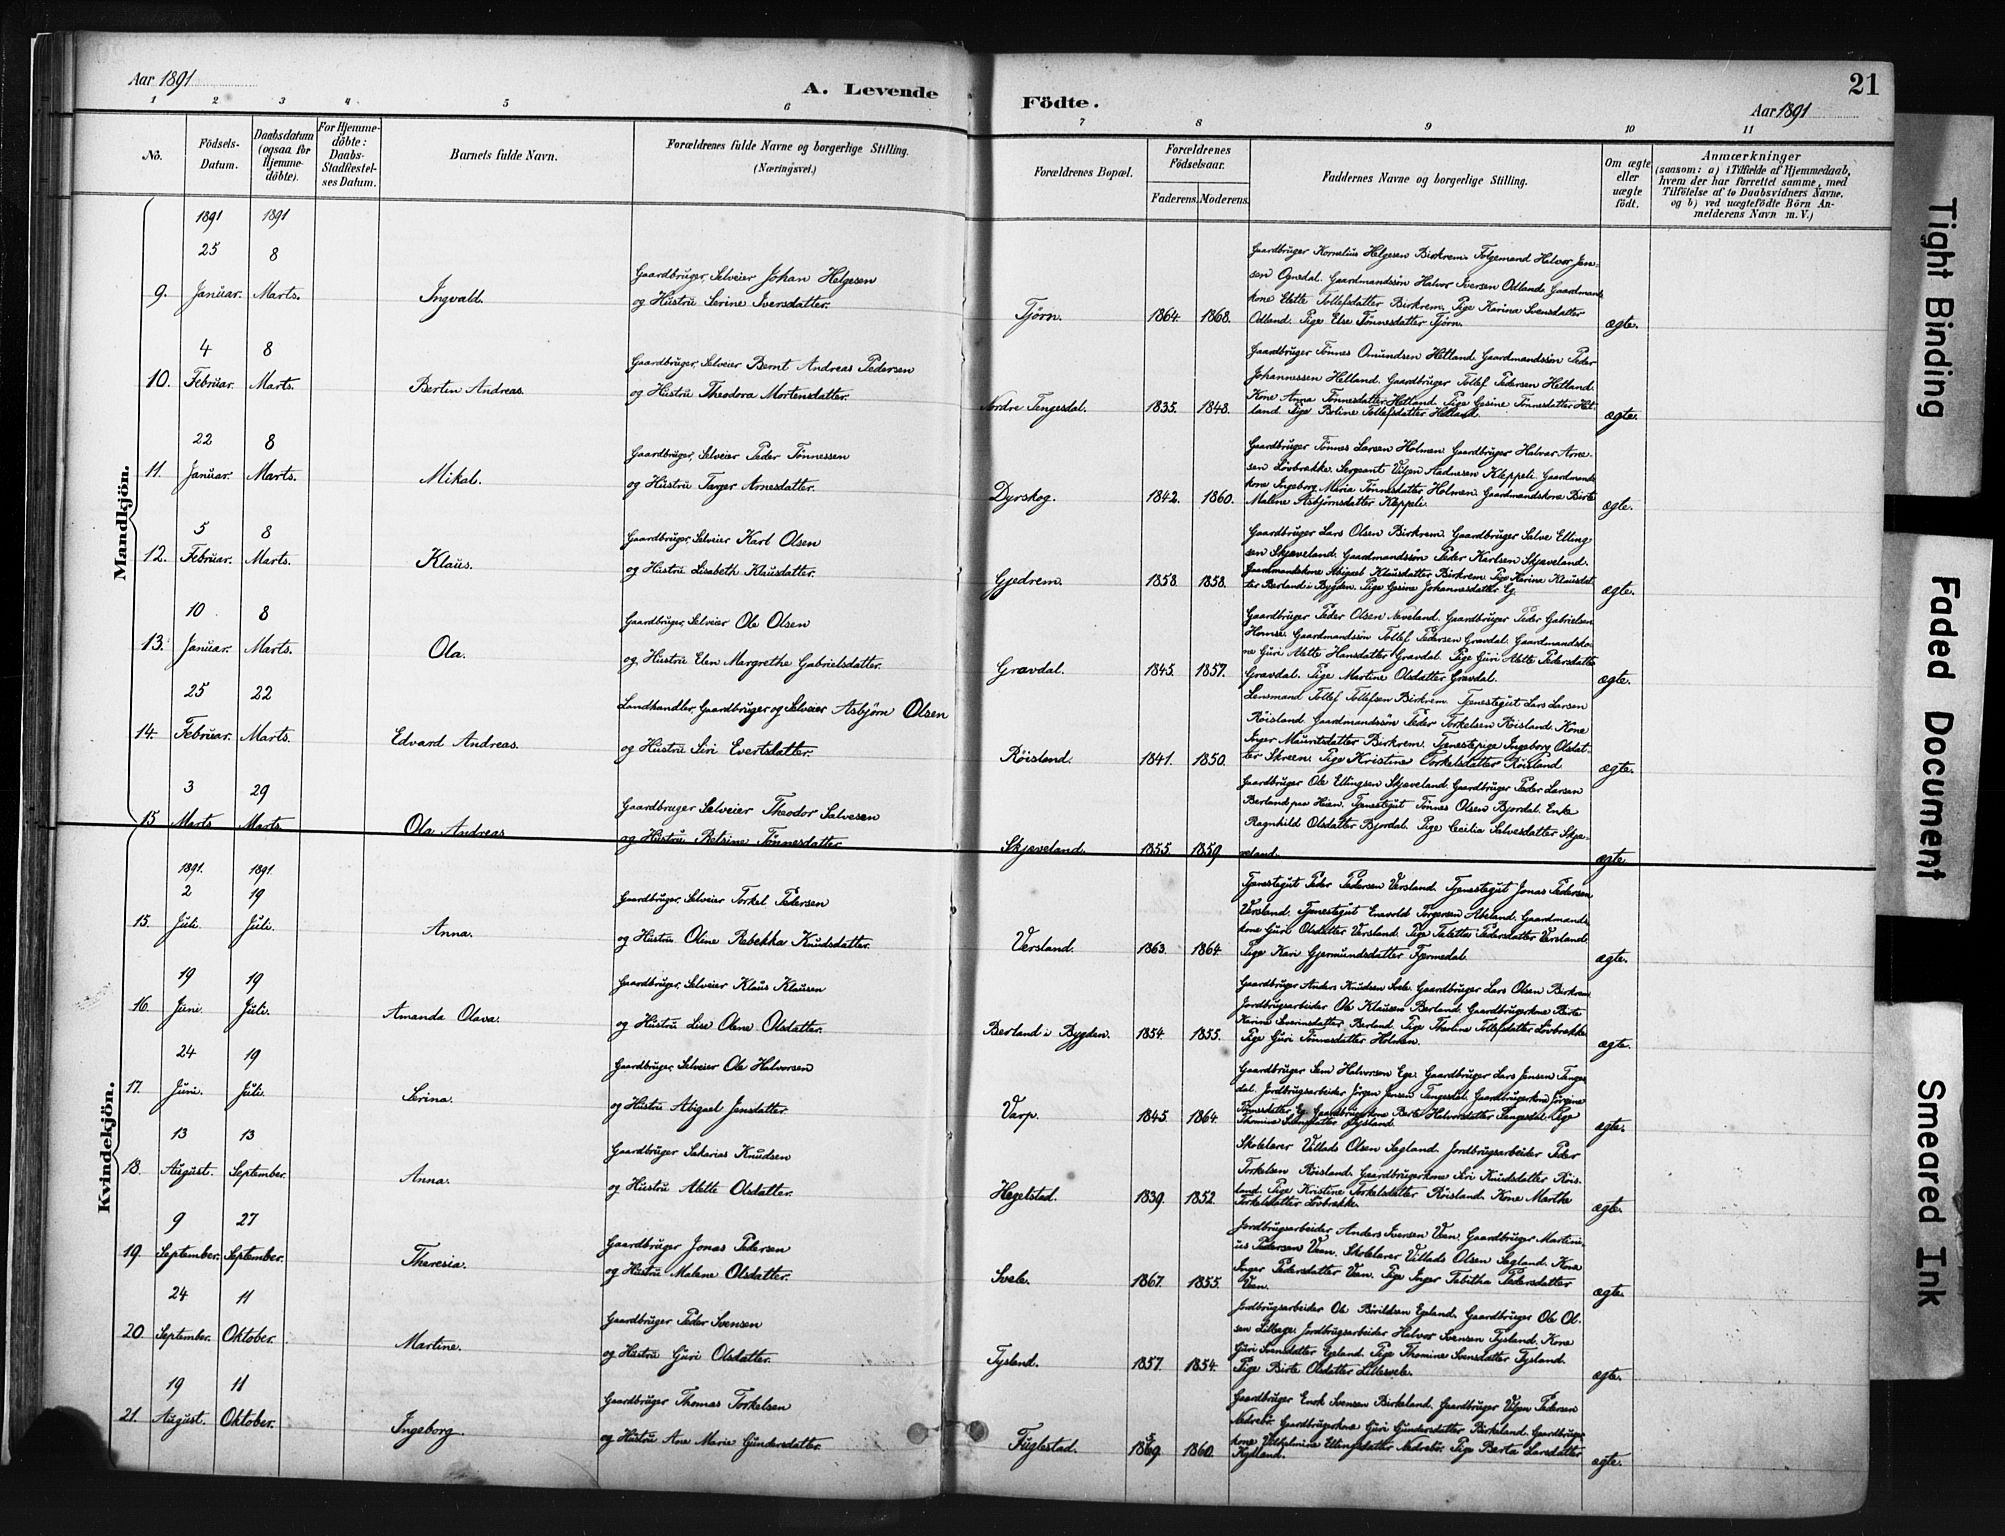 Aar 1891
A. Levende
Födte.
21
Aar 1891
1 2 3 4 5 6 7 8 9 10 11
No.
Födsels-
Datum.
Daabsdatum
(ogsaa for
Hjemme-
döbte).
For Hjemme-
döbte:
Daabs-
Stadfæstel-
ses Datum.
Barnets fulde Navn.
Forældrenes fulde Navne og borgerlige Stilling.
(Næringsvei.)
Forældrenes Bopæl.
Forældrenes
Födselsaar.
Faderens. Moderens.
Faddernes Navne og borgerlige Stilling.
Om ægte
eller
uægte
födt.
Anmærkninger
(saasom: a) i Tilfælde af Hjemmedaab,
hvem der har forrettet samme, med
Tilföielse af to Daabsvidners Navne,
og b) ved uægtefödte Börn An-
melderens Navn m. V.)
Mandkjön.
1891 1891
25 8
9. Januar. Marts. Ingvald.
Gaardbruger, Selveier Johan Helgesen
og Hustru Serine Iversdatter.
Tjørn. 1864. 1868.
Gaardbruger Kornelius Helgesen Birkrem. Følgemand Halvor Jen-
sen Ognedal. Gaardmandssön Halvor Iversen Odland. Gaardmands
kone Elette Tollefsdatter Birkrem. Pige Karina Svensdatter
Odland. Pige Else Tønnesdatter Tjørn.
ægte.
4 8
10. Februar. Marts. Berten Andreas.
Gaardbruger, Selveier Bernt Andreas Pedersen
og Hustru Theodora Mortensdatter.
Nordre Tengesdal. 1835. 1848.
Gaardbruger Tønnes Omundsen Hetland. Gaardmandssøn Peder
Johannessen Hetland. Gaardbruger Tollef Pedersen Hetland.
Kone Anna Tønnesdatter Hetland. Pige Gesine Tønnesdatter Het-
land. Pige Boline Tollefsdatter Hetland.
ægte.
22 8
11. Januar. Marts. Mikal.
Gaardbruger, Selveier Peder Tønnessen
og Hustru Targer Arnesdatter.
Dyrskog. 1842. 1860.
Gaardbruger Tønnes Larsen Holmen. Gaardbruger Halvor Arne
sen Løvbrække. Sergeant Villjen Aadnesen Kleppeli. Gaardmands
kone Ingeborg Maria Tønnesdatter Holmen. Gaardmandskone Birte
Malene Asbjørnsdatter Kleppeli.
ægte.
5 8
12. Februar. Marts. Klaus.
Gaardbruger, Selveier Karl Olsen
og Hustru Lisabeth Klausdatter.
Gjedrem. 1858. 1858.
Gaardbruger Lars Olsen Birkrem. Gaardbruger Salve Elling
sen Skjæveland. Gaardmandssøn Peder Karlsen Skjæveland.
Gaardmandskone Abigael Klausdatter Birkrem. Pige Karine Klausdat-
ter Berland i Bygden. Pige Gesine Johannesdatter Eg.
ægte.
10. 8
13. Januar. Marts. Ola.
Gaardbruger, Selveier Ole Olsen
og Hustru Elen Margrethe Gabrielsdatter.
Gravdal. 1845. 1857.
Gaardbruger Peder Olsen Neveland. Gaardbruger Peder Gabrielsen
Homse. Gaardmandssön Tollef Pedersen Gravdal. Gaardmandsko-
ne Guri Alette Hansdatter Gravdal. Pige Guri Alette Pedersdatter
Gravdal. Pige Martine Olsdatter Gravdal.
ægte.
25 22
14. Februar. Marts. Edvard Andreas.
Landhandler, Gaardbruger og Selveier Asbjørn Olsen
og Hustru Siri Evertsdatter.
Røisland. 1841. 1850.
Lensmand Tollef Tollefsen Birkrem. Tjenestegut Lars Larsen
Røisland. Gaardmandssøn Peder Torkelsen Røisland. Kone
Inger Mauritsdatter Birkrem. Tjenestepige Ingeborg Olsdat-
ter Skreen. Pige Kristine Torkelsdatter Røisland.
ægte.
3 29
15 Marts Marts. Ola Andreas
Gaardbruger Selveier Theodor Salvesen
og Hustru Relsine Tønnesdatter
Skjæveland. 1855. 1859.
Gaardbruger Ole Ellingsen Skjæveland. Gaardbruger Peder Larsen
Berland paa Hien. Tjenestegut Tønnes Olsen Bjordal. Enke
Ragnhild Olsdatter Bjordal. Pige Cecilia Salvesdatter Skjæ-
veland.
ægte
Kvindekjön.
1891. 1891.
2 19
15. Juli. Juli. Anna.
Gaardbruger, Selveier Torkel Pedersen
og Hustru Oline Rebekka Knudsdatter.
Versland. 1863. 1864.
Tjenestegut Peder Pedersen Versland. Tjenestegut Jonas Pedersen
Versland. Tjenestegut Enevold Torgersen Abeland. Gaardmands
kone Guri Olsdatter Versland. Pige Talette Pedersdatter Versland.
Pige Kari Gjermundsdatter Fjermedal.
ægte.
19 19
16. Juni. Juli. Amanda Olava.
Gaardbruger, Selveier Klaus Klausen
og Hustru Lise Olene Olsdatter.
Berland i Bygden. 1854. 1855.
Gaardbruger Anders Knudsen Svele. Gaardbruger Lars Olsen Birkrem
Jordbrugsarbeider Ole Klausen Berland. Gaardbrugerkone Birte
Karine Severinsdatter Berland. Pige Thorline Tollefsdatter Løvbrække
Pige Guri Tønnesdatter Holmen.
ægte.
24 19
17. Juni. Juli. Serina.
Gaardbruger, Selveier Ole Halvorsen
og Hustru Abigael Jensdatter.
Varp. 1845. 1864.
Gaardbruger Sem Halvorsen Ege. Gaardbruger Lars Jensen Tenges
dal. Jordbrugsarbeider Jörgen Jensen Tengesdal. Gaardbrugerkone Jörgine
Tønnesdatter Eg. Gaardbrugerkone Berte Halvorsdatter Tengesdal. Pige
Thomine Svensdatter Tysland.
ægte.
13 13
18. August. September. Anna.
Gaardbruger Sakarias Knudsen
og Hustru Alette Olsdatter.
Hegelstad. 1839. 1852.
Skolelærer Villads Olsen Segland. Jordbrugsarbeider Peder
Torkelsen Røisland. Gaardbrugerkone Siri Knudsdatter Røis-
land. Pige Kristine Torkelsdatter Röisland. Kone Marthe
Torkelsdatter Løvbrække.
ægte.
9 27
19. September. September. Theresia.
Gaardbruger Jonas Pedersen
og Hustru Malene Olsdatter.
Svele. 1867. 1855.
Jordbrugsarbeider Anders Iversen Veen. Gaardbruger Martini-
us Pedersen Veen. Skolelærer Villads Olsen Segland. Kone
Inger Pedersdatter Veen. Pige Inger Tabitha Pedersdatter
Veen.
ægte.
24 11
20. September. Oktober. Martine.
Gaardbruger Peder Svensen
og Hustru Guri Olsdatter.
Tysland. 1857. 1854.
Jordbrugsarbeider Ole Börildsen Egeland. Gaardbruger Ole Ol-
sen Lillege. Jordbrugsarbeider Halvor Svensen Tysland. Kone
Guri Svensdatter Egeland. Pige Thomine Svensdatter Tysland.
Pige Birte Olsdatter Lillesvele.
ægte.
19 11
21. August. Oktober. Ingeborg.
Gaardbruger Thomas Torkelsen
og Hustru Ane Marie Gundersdatter.
Fuglestad. 1869 1860.
Gaardbruger Enok Svensen Birkeland. Gaardbruger Viljen Pedersen
Nedrebø. Gaardbrugerkone Guri Gundersdatter Birkeland. Gaardbruger
kone Vilhelmine Ellingsdatter Nedrebø. Pige Berta Larsdatter
Kydland.
ægte.
Tight Binding
Faded Document
Smeared Ink